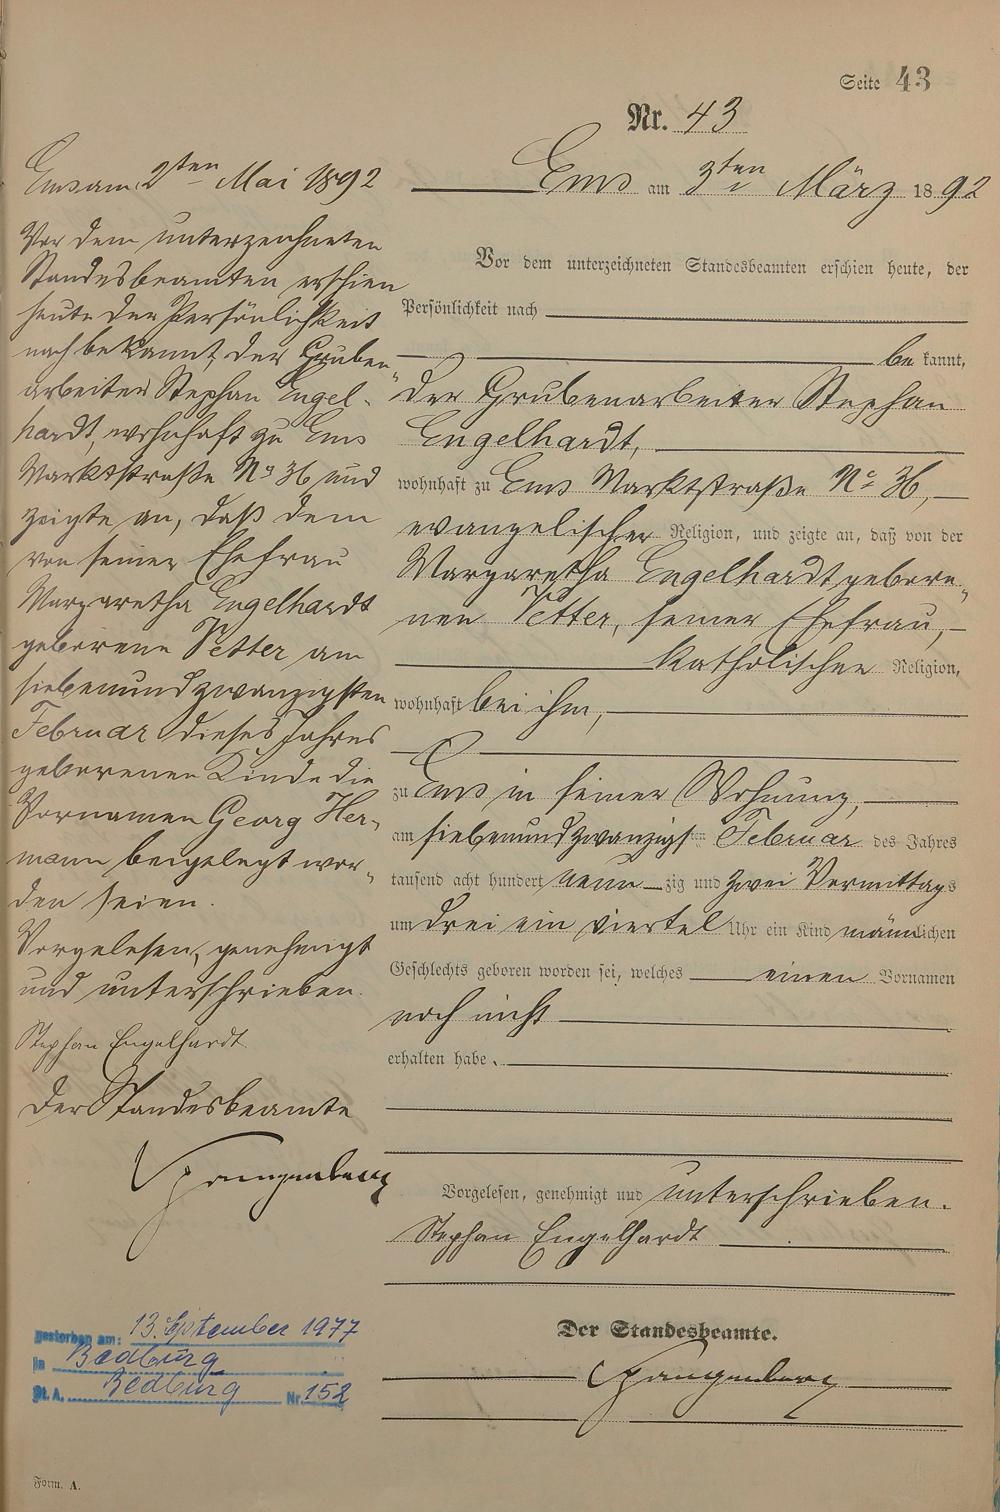 Seite 43
Nr. 43
Ems am 2ten Mai 1892
Vor dem unterzeichneten
Standesbeamten erschien
heute der Persönlichkeit
nach bekannt, der Gruben„
arbeiter Stephan Engel-
hardt, wohnhaft zu Ems
Marktstraße No 36 und
zeigte an, daß dem
von seiner Ehefrau
Margaretha Engelhardt
geborene Petter am
siebenundzwanzigsten
Februar dieses Jahres
geborenen Kinde die
Vornamen Georg Her-
mann beigelegt wor„
den seien.
Vorgelesen, genehmigt
und unterschrieben.
Stephan Engelhardt
Der Standesbeamte
Spangenberg
gestorben am: 13. September 1977
in Bedburg
St. A. Bedburg Nr. 152
Form. A.
Ems am 3ten März 1892
Vor dem unterzeichneten Standesbeamten erschien heute, der
Persönlichkeit nach
be kannt,
der Grubenarbeiter Stephan
Engelhardt,
wohnhaft zu Ems Marktstraße No 36,
evangelischer Religion, und zeigte an, daß von der
Margaretha Engelhardt gebore„
nen Petter, seiner Ehefrau,
katholischer Religion,
wohnhaft bei ihm,
zu Ems in seiner Wohnung,
am siebenundzwanzigsten Februar des Jahres
tausend acht hundert neun zig und zwei Vormittags
um drei ein viertel Uhr ein Kind männlichen
Geschlechts geboren worden sei, welches einen Vornamen
noch nicht
erhalten habe.
Vorgelesen, genehmigt und unterschrieben.
Stephan Engelhardt
Der Standesbeamte.
Spangenberg